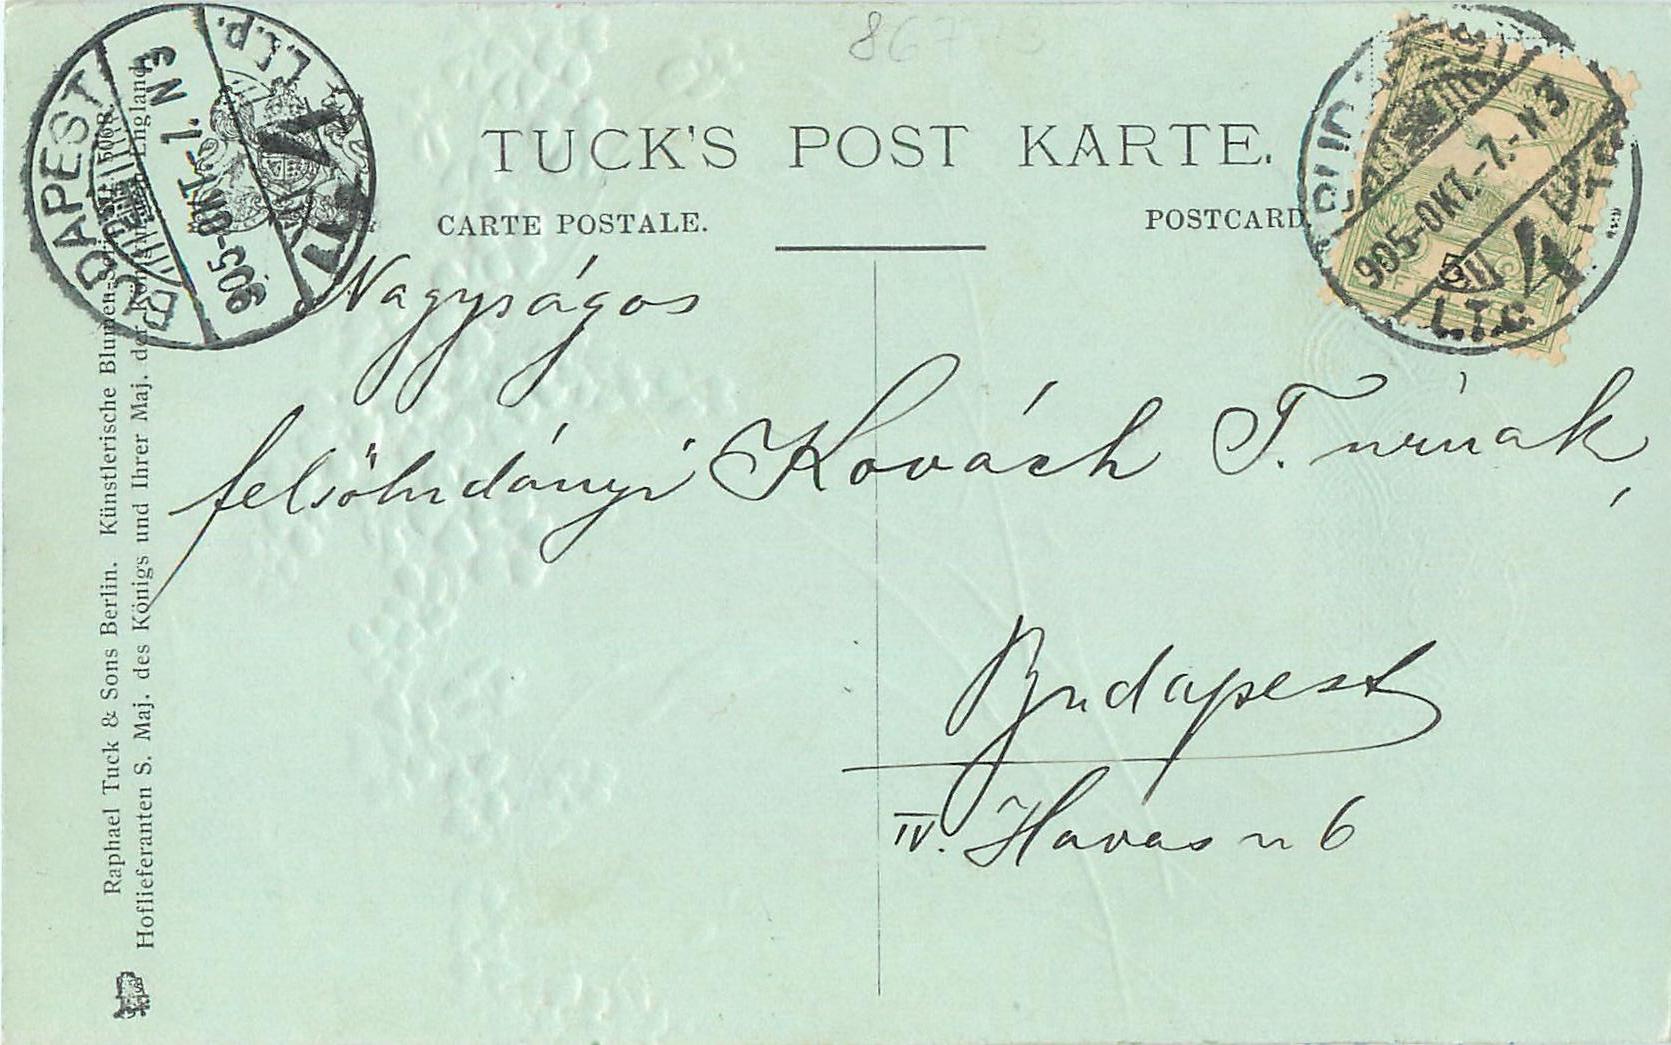 TUCK'S POST KARTE.
CARTE POSTALE.
POSTCARD
BUDAPEST
905-OKT.-7.-N3
905-OKT.-7.-N3
4
Nagyságos
felsöludányi Kovách T. urnak,
Budapest
IV. Havas u 6
Raphael Tuck & Sons Berlin. Künstlerische Blumen-
Hoflieferanten S. Maj. des Königs und Ihrer Maj. der Königin von England.